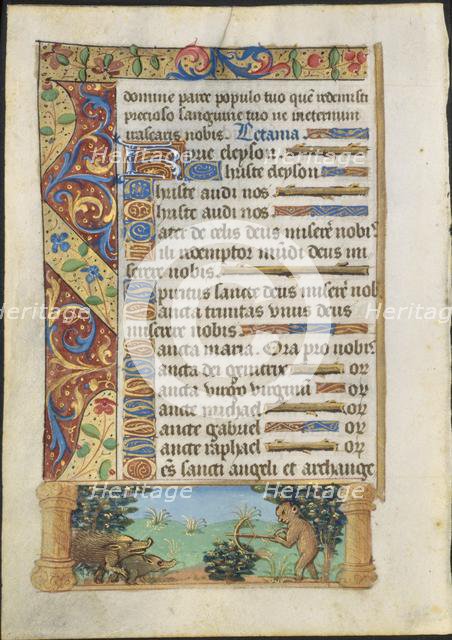 domine parce populo tuo quē redemisti
precioso sanguine tuo ne ineternum
irascaris nobis. Letania.
Kyrie eleyson
Christe eleyson
Christe audi nos
Christe audi nos
Pater de celis deus miserē nobis
Fili redemptor mūdi deus mi
serere nobis
Spiritus sancte deus miserē nob
Sancta trinitas vnus deus
miserere nobis
Sancta maria. Ora pro nobis
Sancta dei genitrix or
Sancta virgo virginū or
Sancte michael or
Sancte gabriel or
Sancte raphael or
Oēs sancti angeli et archange
Heritage Images